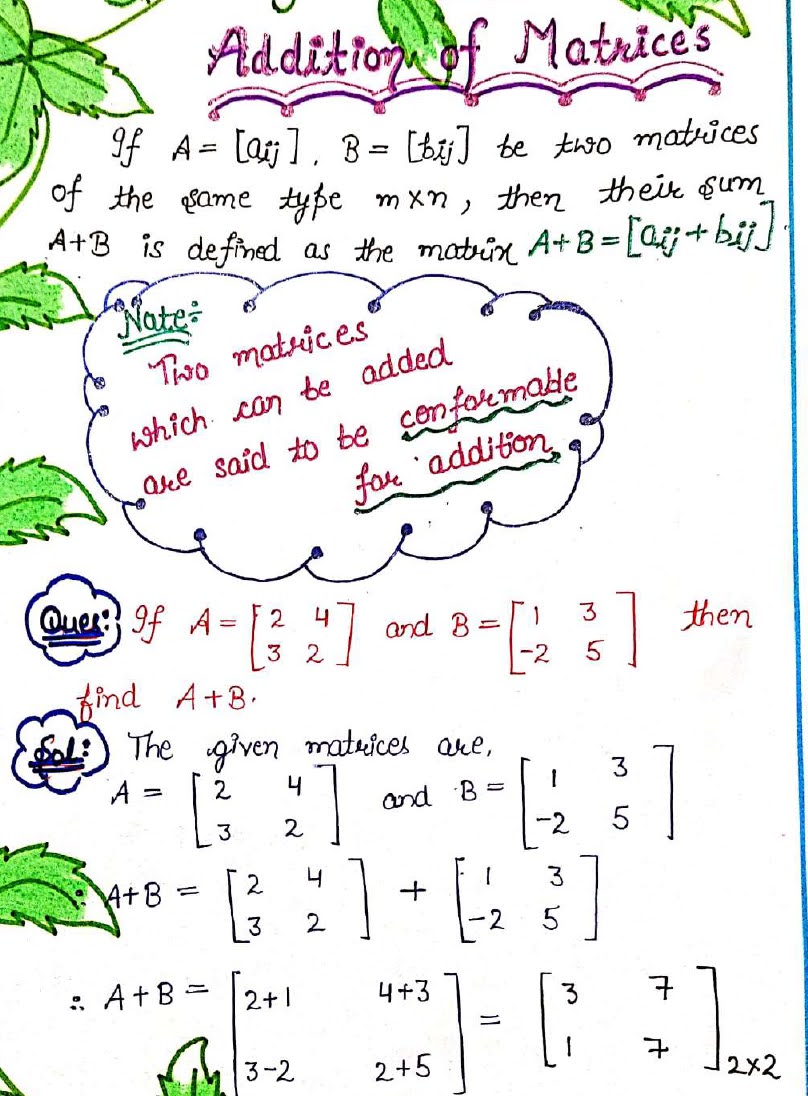 Addition of Matrices
If A = [aij], B = [bij] be two matrices
of the same type m×n, then their sum
A+B is defined as the matrix A+B=[aij+bij].
Note:
Two matrices
which can be added
are said to be conformable
for addition.
Ques: If A = [2 4; 3 2] and B = [1 3; -2 5] then
find A+B.
Sol: The given matrices are,
A = [2 4; 3 2] and B = [1 3; -2 5]
∵ A+B = [2 4; 3 2] + [1 3; -2 5]
∴ A+B = [2+1 4+3; 3-2 2+5] = [3 7; 1 7] 2×2